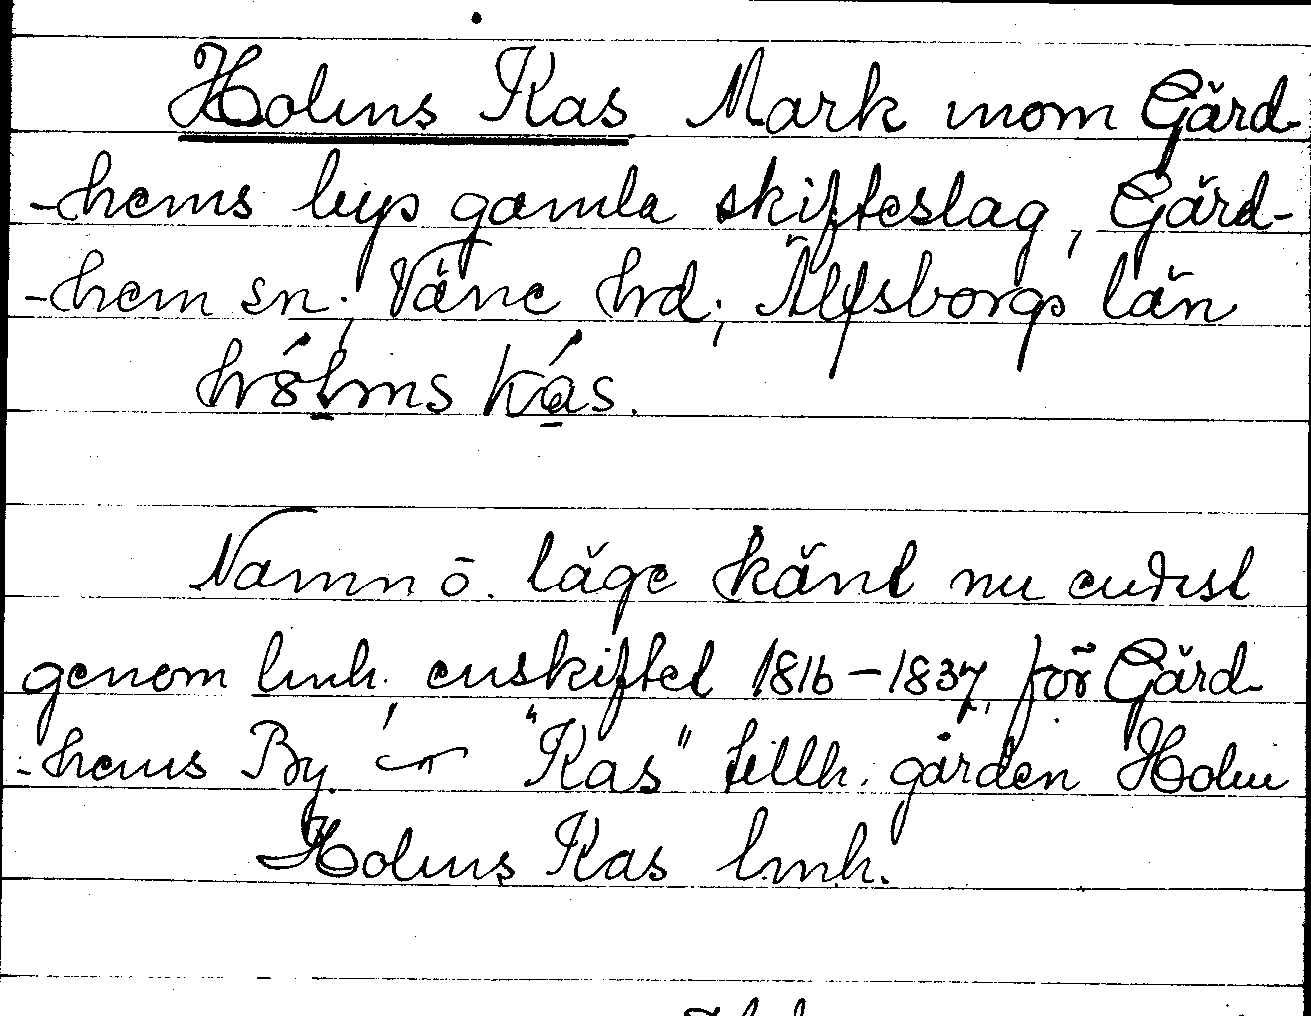 Holms Kas Mark inom Gärd-
-hems bys gamla skifteslag, Gärd-
-hem sn; Väne hd; Älfsborgs län
Namn o. läge känt nu endast
genom lmh. enskiftet 1816-1837, för Gärd-
-hems By. "Kas" tillh. gården Holm
Holms Kas lmh.